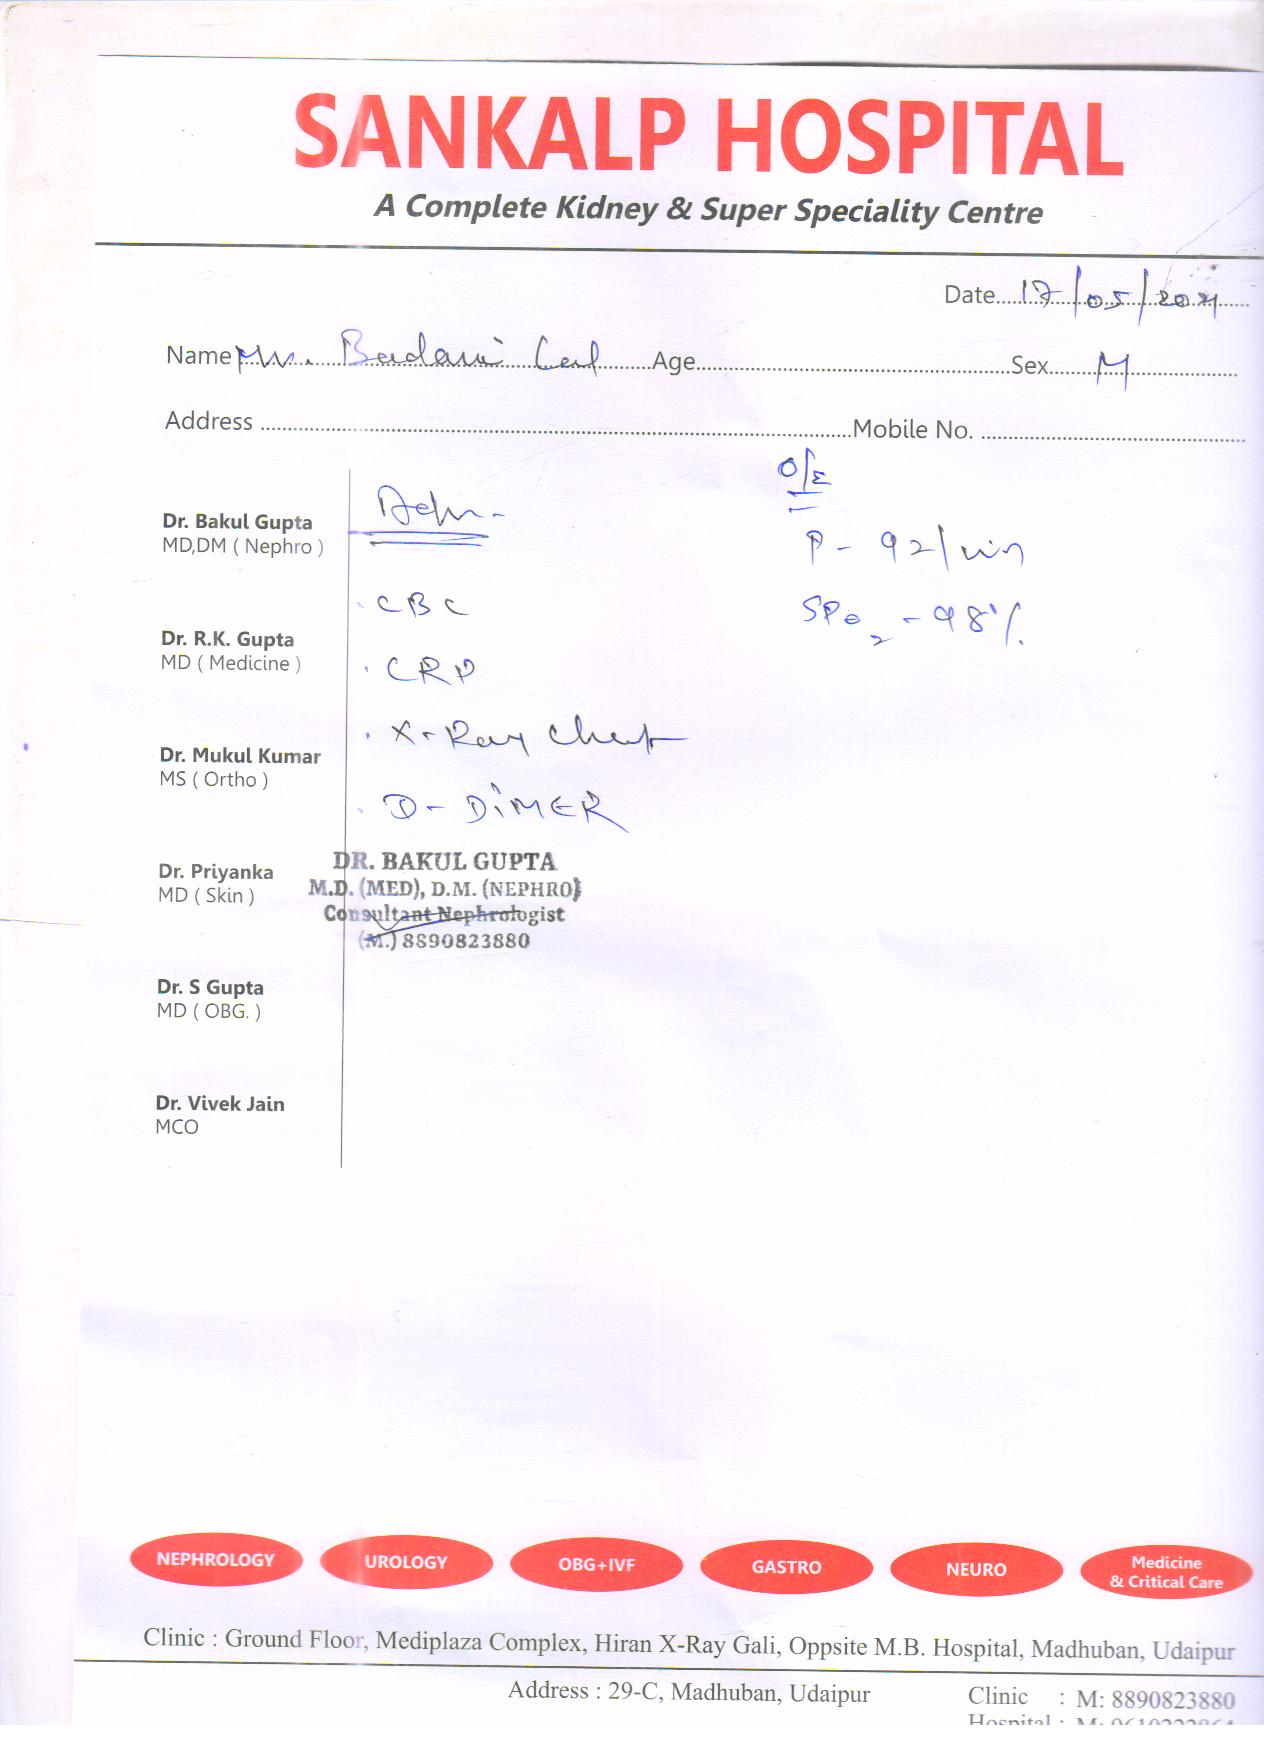 SANKALP HOSPITAL
A Complete Kidney & Super Speciality Centre
Date 17/05/2021
Name Mr. Badami Lal Age Sex M
Address Mobile No.
O/E
Adv -
P - 92/min
SPO2 - 98%
Dr. Bakul Gupta
MD,DM ( Nephro )
CBC
Dr. R.K. Gupta
MD ( Medicine )
CRP
X-Ray Chest
Dr. Mukul Kumar
MS ( Ortho )
D-DIMER
DR. BAKUL GUPTA
M.D. (MED), D.M. (NEPHRO)
Consultant Nephrologist
(M.) 8890823880
Dr. Priyanka
MD ( Skin )
Dr. S Gupta
MD ( OBG. )
Dr. Vivek Jain
MCO
NEPHROLOGY UROLOGY OBG+IVF GASTRO NEURO Medicine & Critical Care
Clinic : Ground Floor, Mediplaza Complex, Hiran X-Ray Gali, Oppsite M.B. Hospital, Madhuban, Udaipur
Address : 29-C, Madhuban, Udaipur
Clinic : M: 8890823880
Hospital : M: